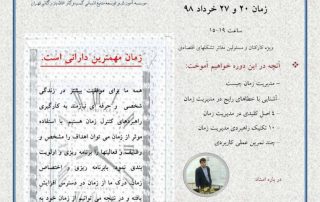 زمان ۲۰ و ۲۷ خرداد ۹۸
ساعت ۱۹-۱۵
ویژه کارکنان و مسئولین دفاتر تشکلهای اقتصادی
آنچه در این دوره خواهیم آموخت:
- مدیریت زمان
آشنایی با خطاهای رایج در مدیریت زمان
۴ اصل کلیدی در مدیریت زمان
۱۰ تکنیک راهبردی مدیریت زمان
چند تمرین عملی کاربردی
در باره استاد
زمان مهمترین دارائی است.
همه ما برای موفقیت بیشتر در زندگی
شخصی و حرفه ای نیازمند به کارگیری
راهبردهای کنترل زمان هستیم. با استفاده
موثر از زمان می توان اهداف را مشخص و
وظایف و فعالیتها را برنامه ریزی و اولویت
بندی نمود. با برنامه ریزی و اختصاص
زمان، درک ما از زمان در دسترس افزایش
یافته و در نتیجه می توانیم از زمان خود به